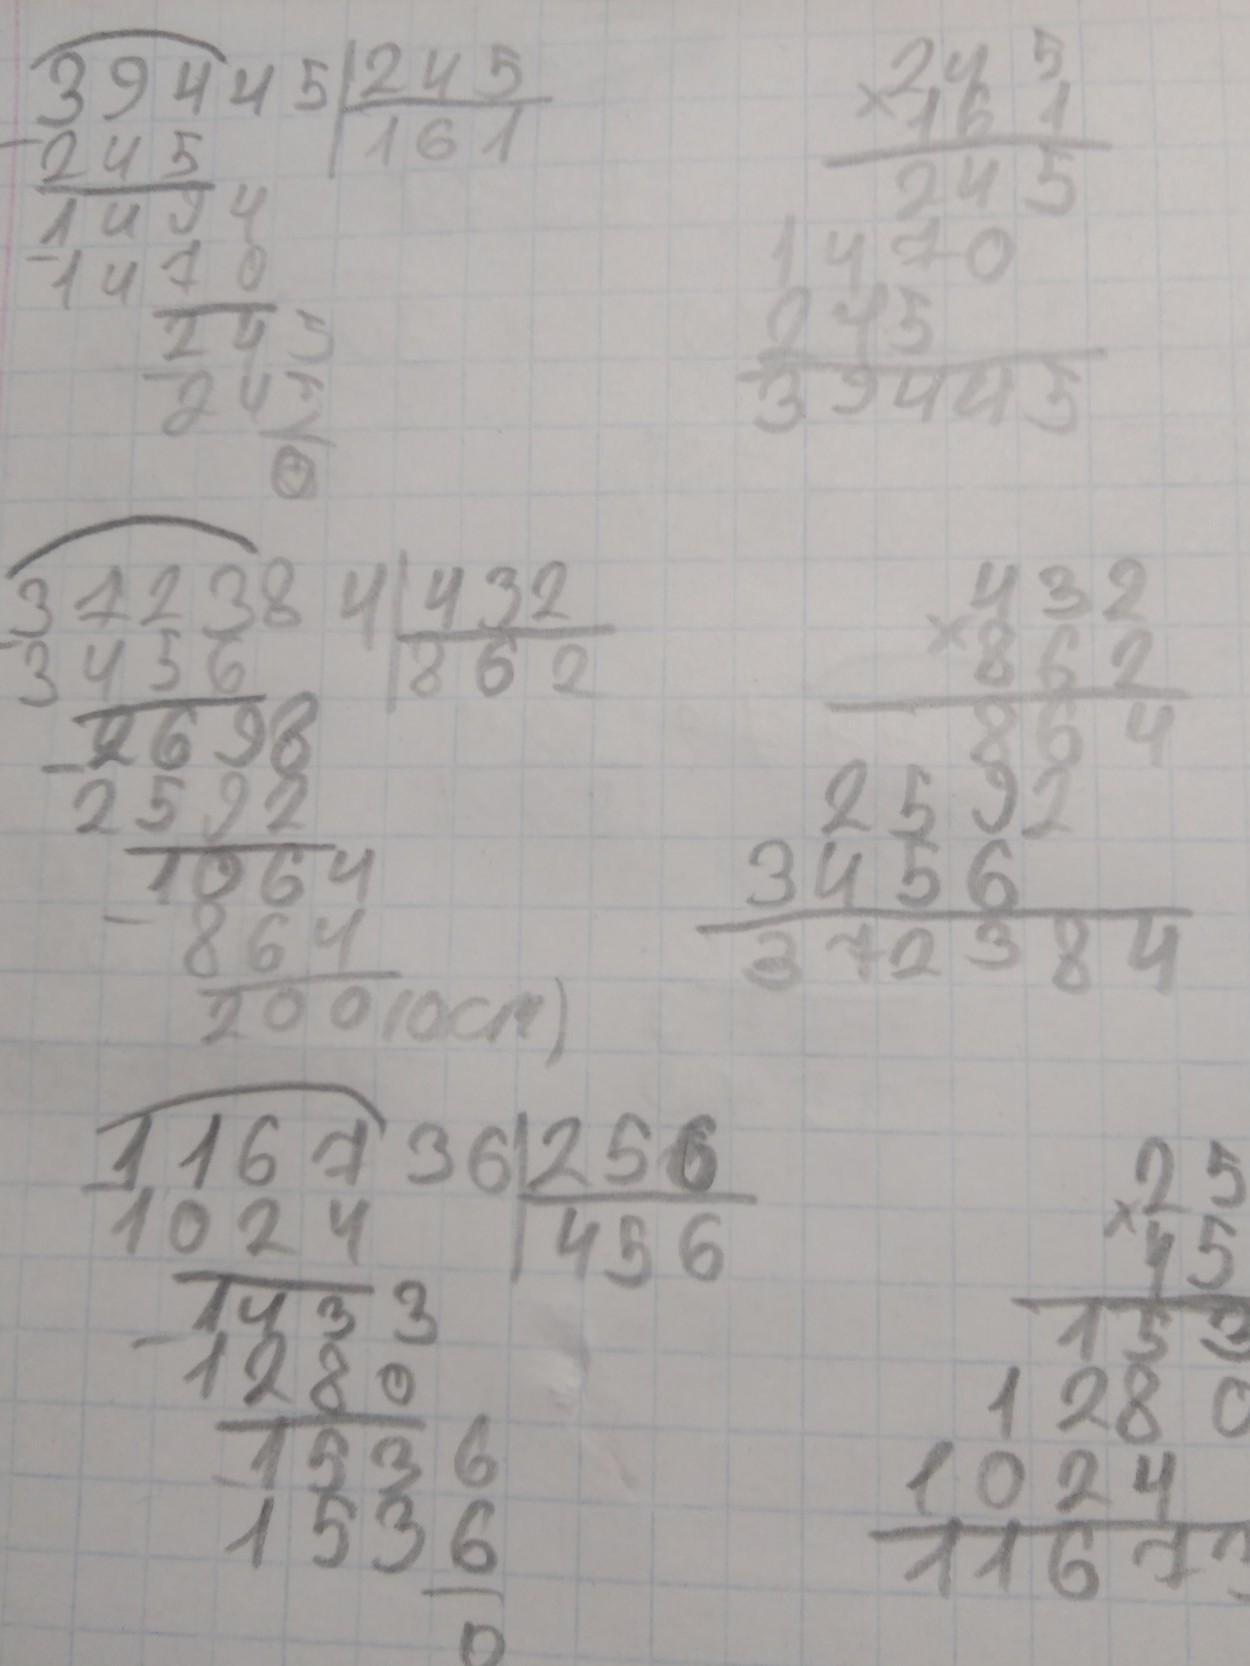 39445 245
245 161
1494
1470
245
245
0
245
×161
245
1470
245
39445
372384 432
3456 862
2698
2592
1064
864
200(ост)
432
×862
864
2592
3456
372384
116736 256
1024 456
1433
1280
1536
1536
0
25
×45
153
1280
1024
11673